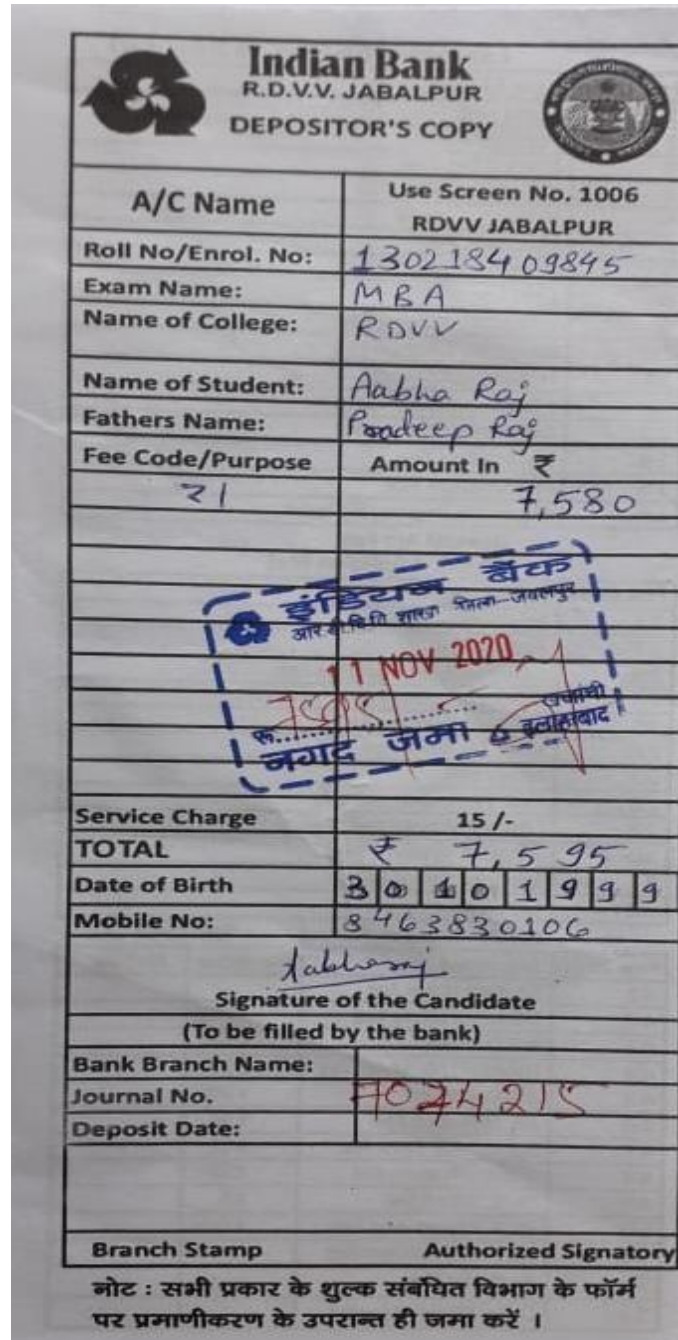 Indian Bank
R.D.V.V. JABALPUR
DEPOSITOR'S COPY
A/C Name Use Screen No. 1006
RDVV JABALPUR
Roll No/Enrol. No: 130218409845
Exam Name: MBA
Name of College: RDVV
Name of Student: Aabha Raj
Fathers Name: Pradeep Raj
Fee Code/Purpose Amount In ₹
21 7,580
इंडियन बैंक
11 NOV 2020
रू.
नगद जमा इलाहाबाद
Service Charge 15/-
TOTAL ₹ 7,595
Date of Birth 30 10 1999
Mobile No: 8463830106
Aabharaj
Signature of the Candidate
(To be filled by the bank)
Bank Branch Name:
Journal No. 7074215
Deposit Date:
Branch Stamp Authorized Signatory
नोट : सभी प्रकार के शुल्क संबंधित विभाग के फॉर्म
पर प्रमाणीकरण के उपरान्त ही जमा करें ।